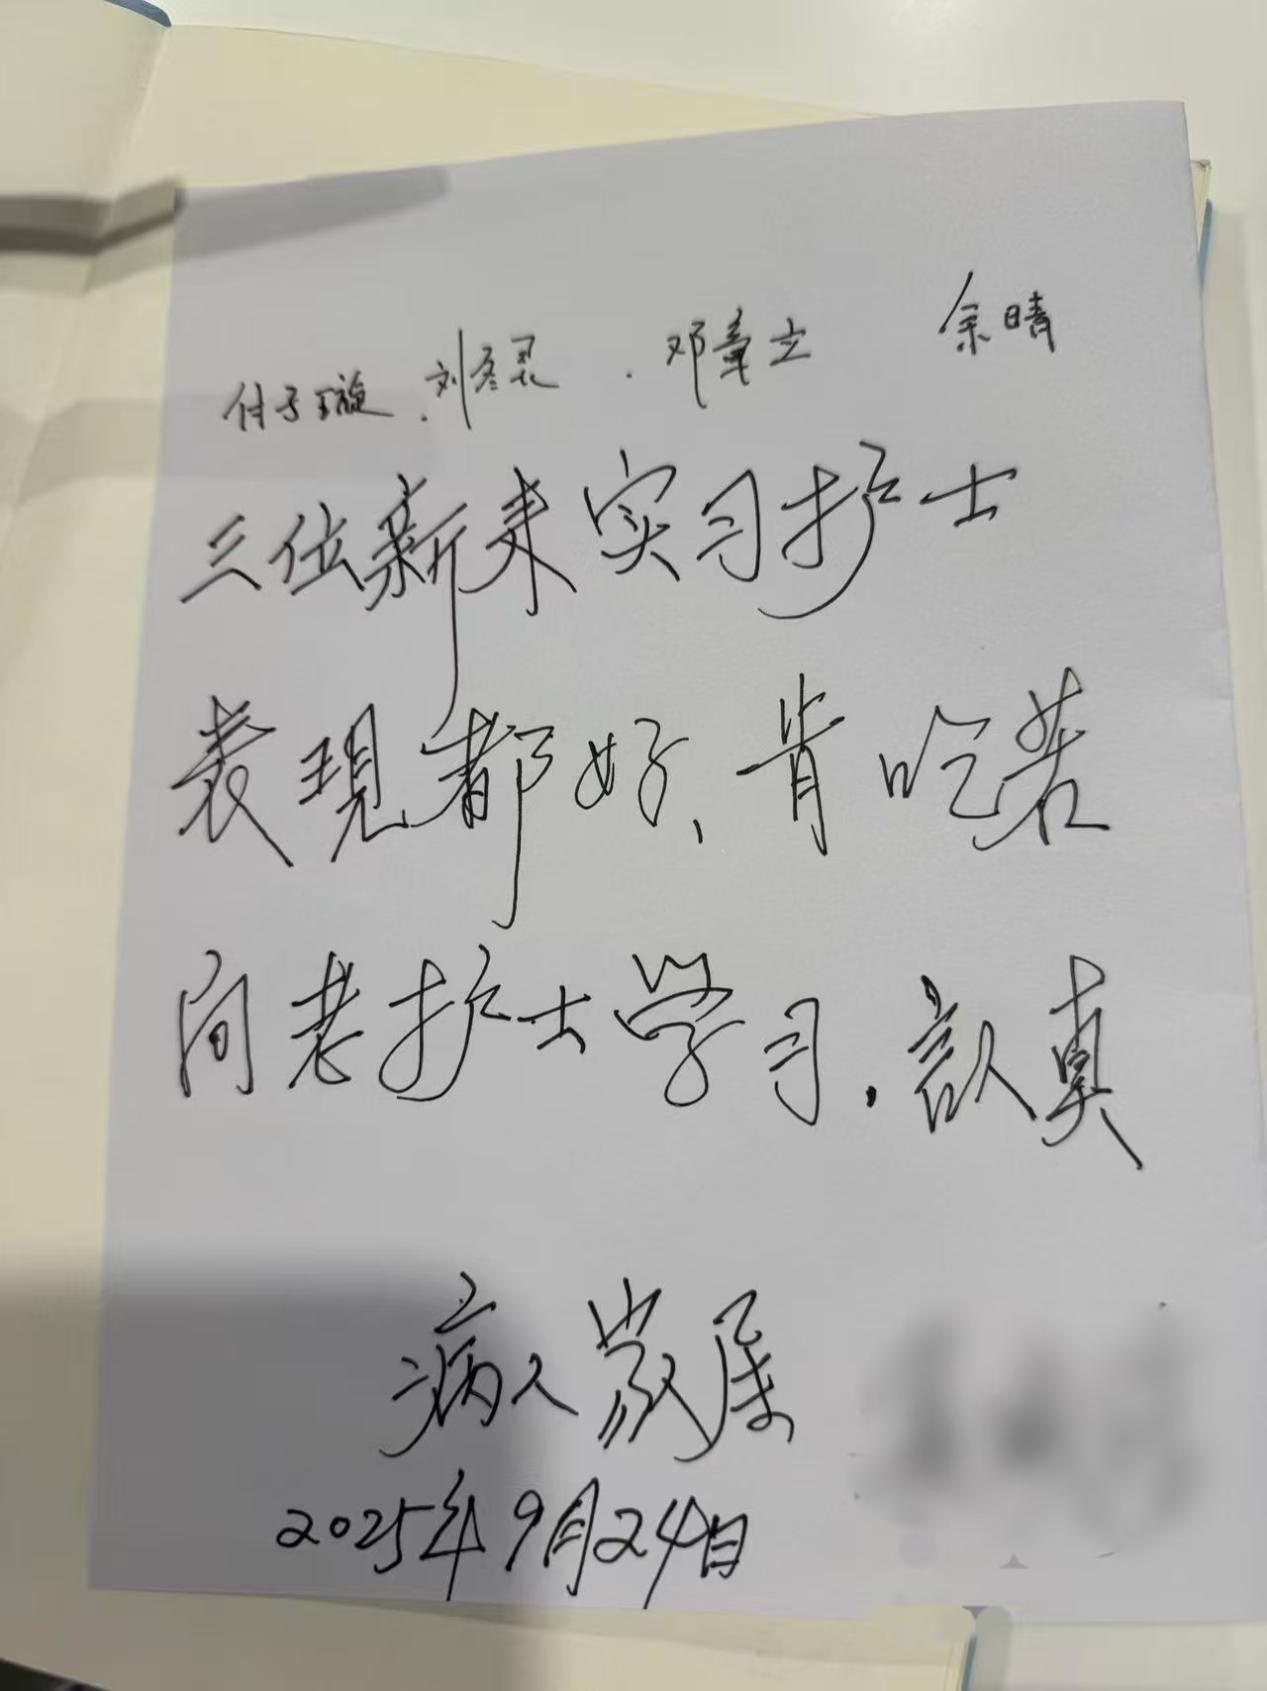 付子璇、刘冬灵、邓章立 余晴
三位新来实习护士
表現都好、肯吃苦
向老护士学习.認真
病人家属
2025年9月24日